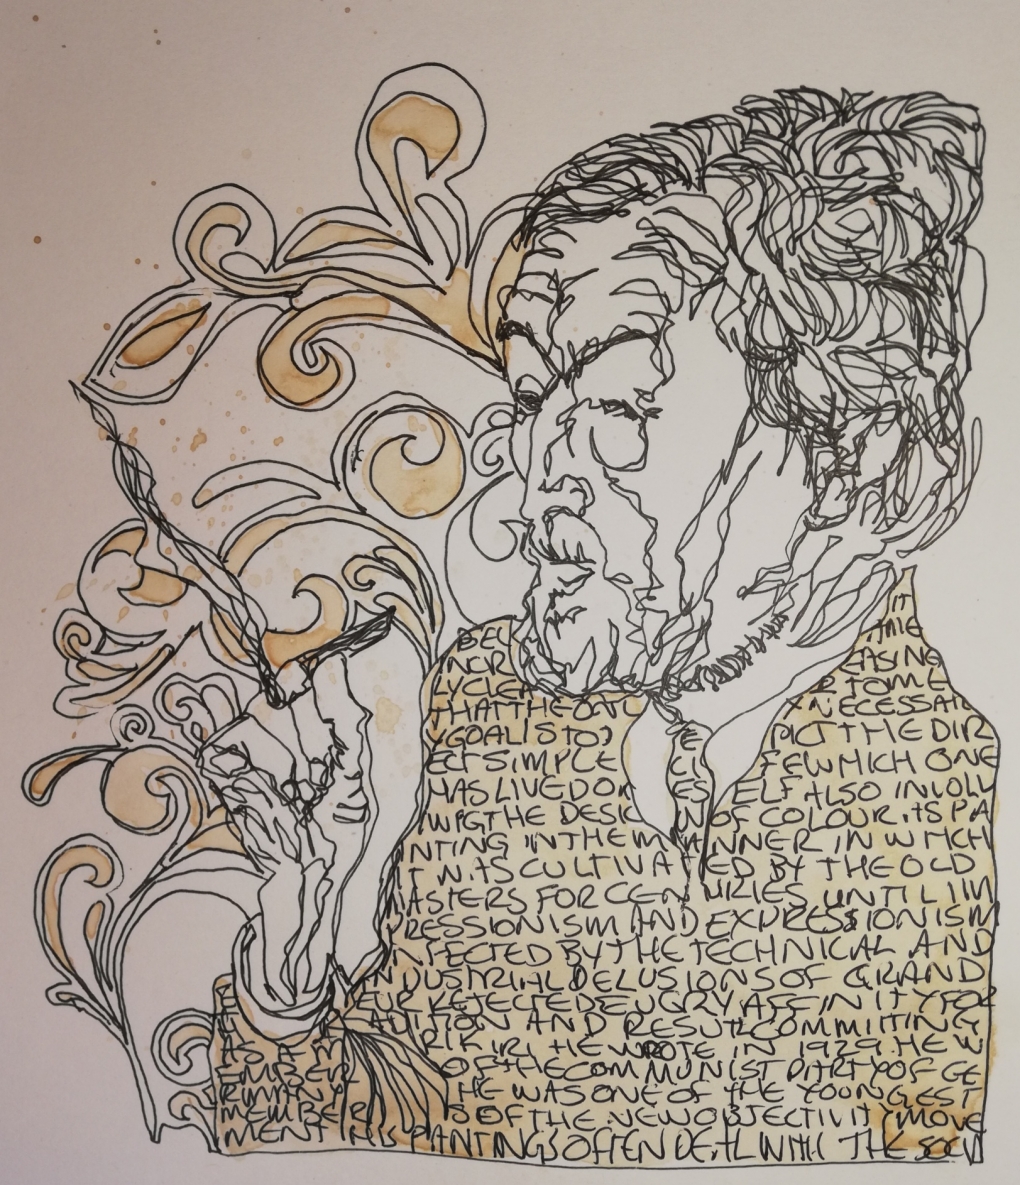 IT
BEC AME
INCR EASING
LYCLEA R TO ME
THAT THE ONL Y NECESSAR
Y GOAL IS TO D EPICT THE DIR
ECT SIMPLE FEW WHICH ONE
HAS LIVED ON ES ELF ALSO INVOLV
WIGTHE DESIG N OF COLOUR. ITS PA
INTING IN THE M ANNER IN WHICH
IT W.TS CULTIVA TED BY THE OLD
MASTERS FOR CEN URIES UNTIL IM
PRESSIONISM AND EXPRESSIONISM
INFECTED BY THE TECHNICAL AND
INDUSTRIAL DELUSIONS OF GRAND
E EUR REJECTED EVERY AFFINITY FOR
AUITION AND RESULT COMMITING
AS A M RIKIRI. HE WROTE IN 1929. HE W
EMBER OF THE COMMUNIST PARTY OF GE
RMANY HE WAS ONE OF THE YOUNGEST
MEMBER S OF THE NEW OBJECTIVITY MOVE
MENT HIS PAINTINGS OFTEN DEAL WITH THE SOCI